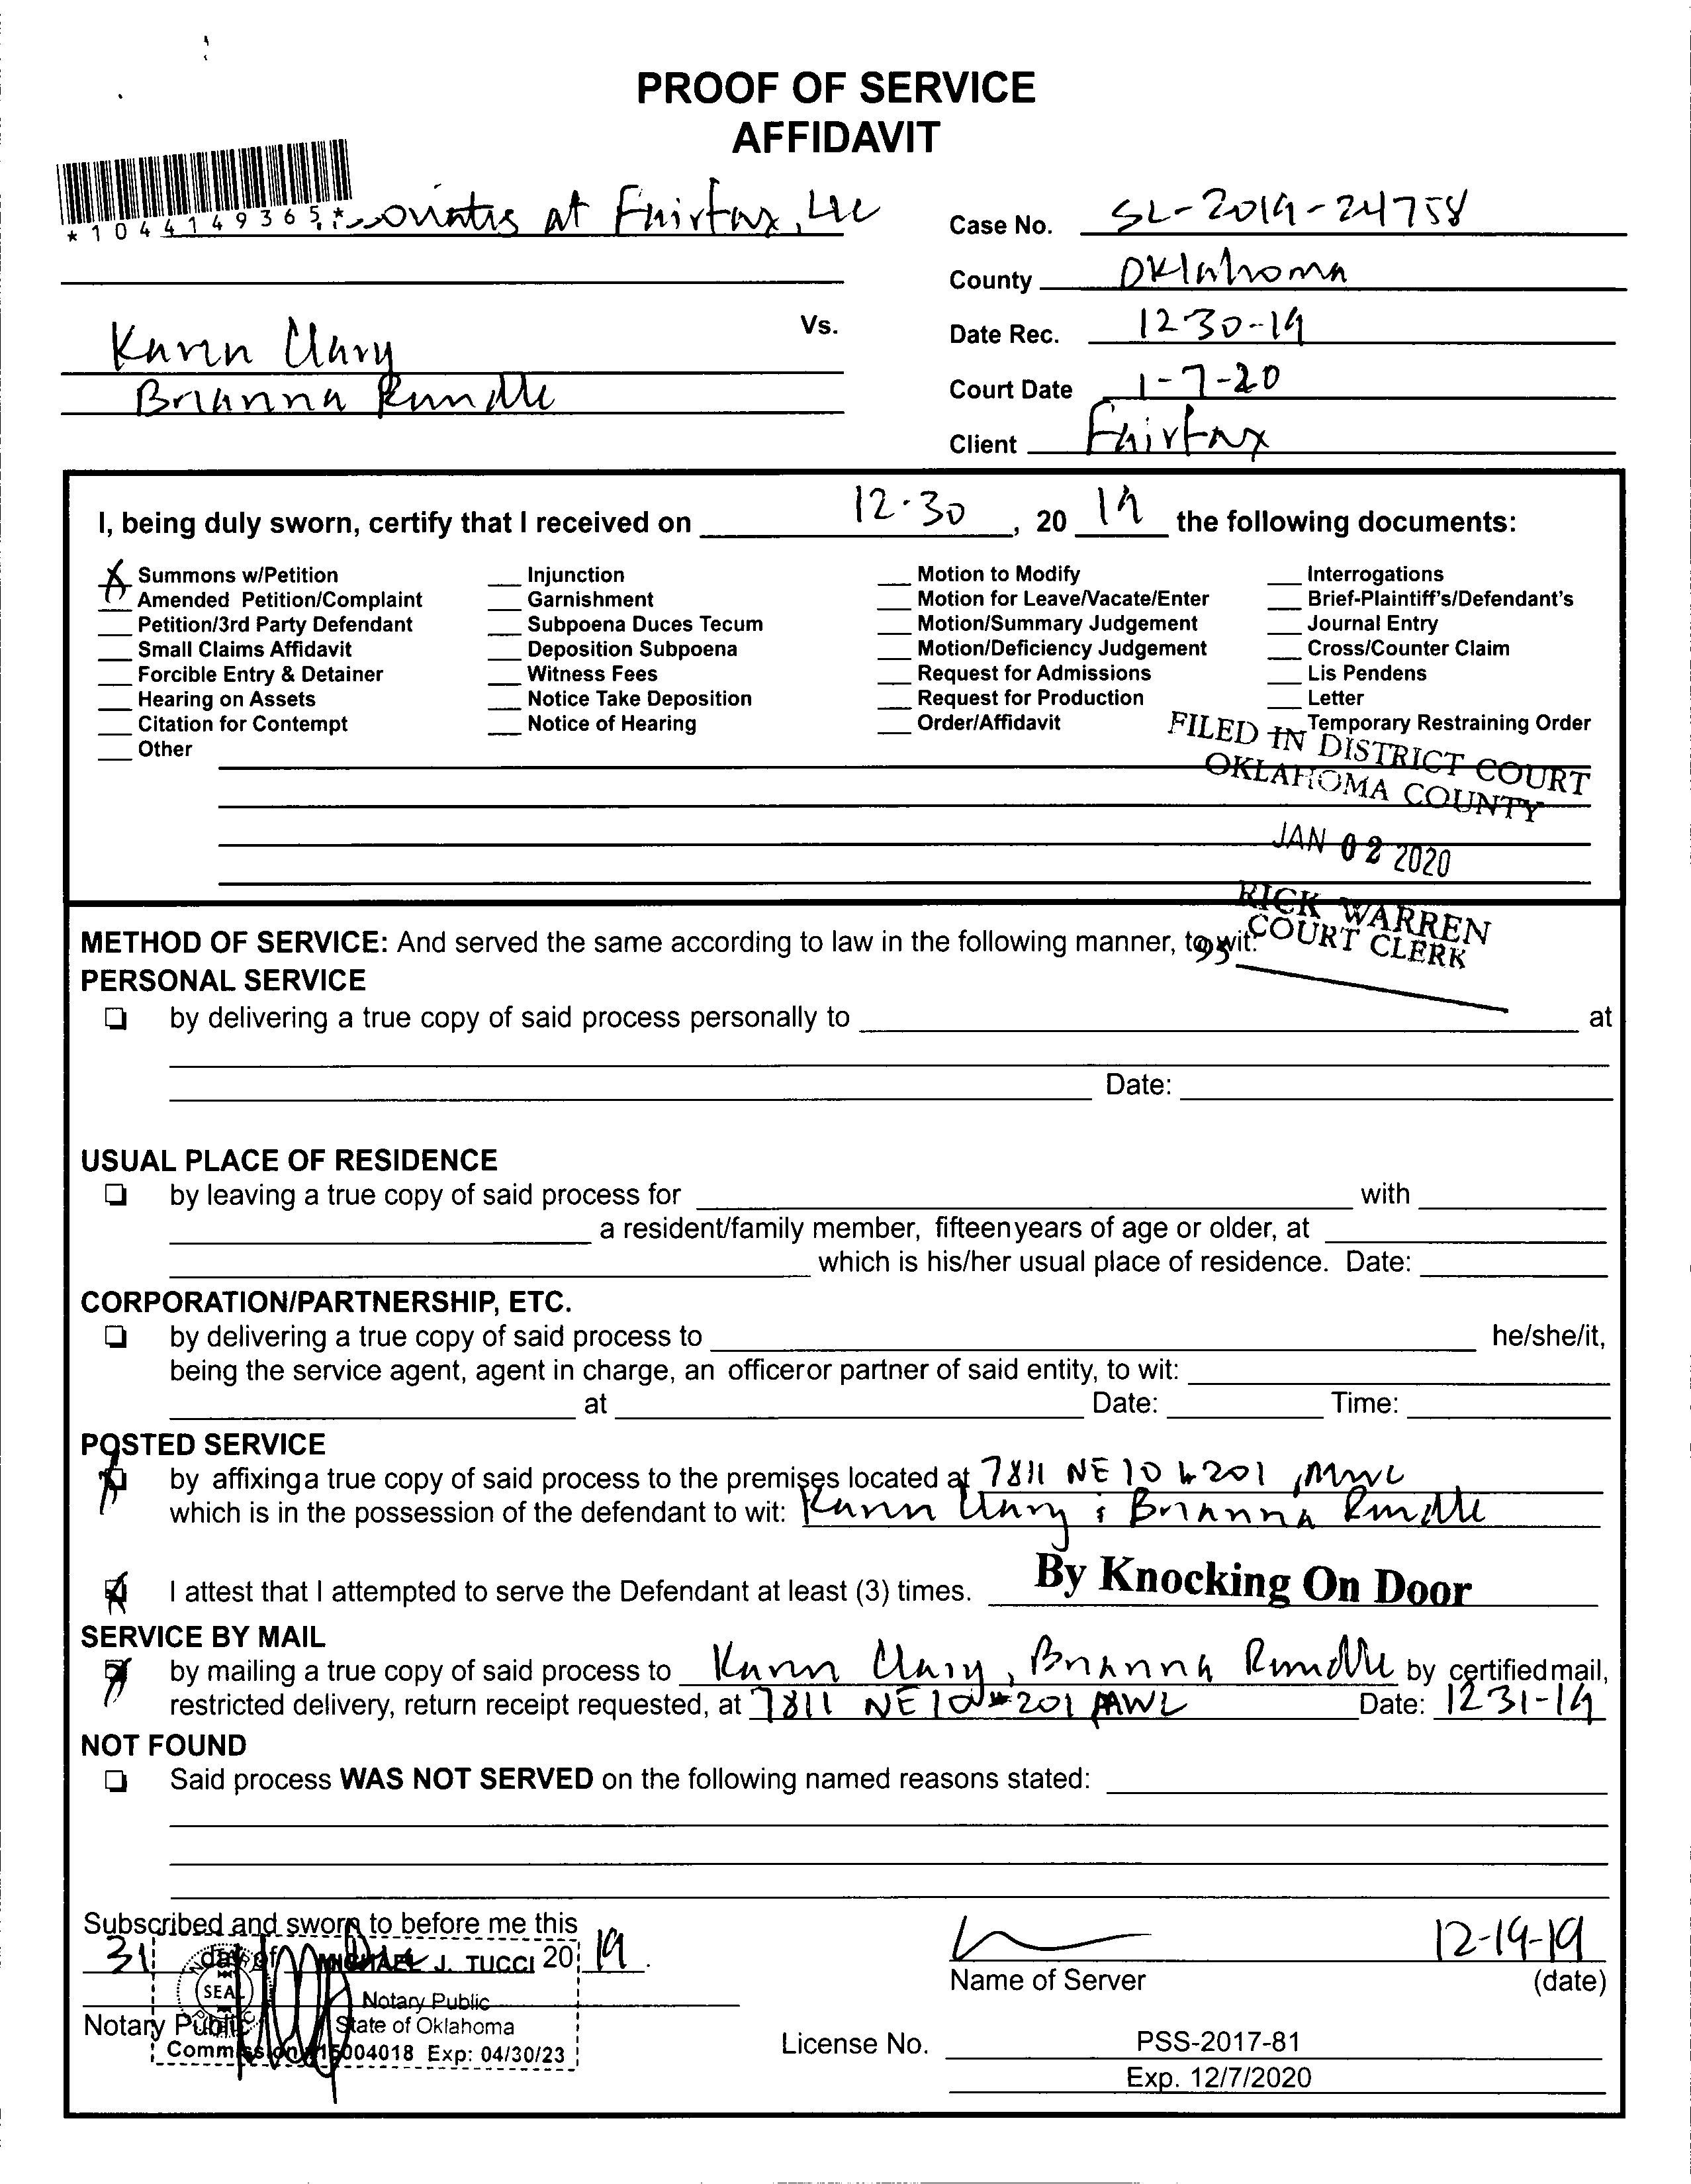 PROOF OF SERVICE
AFFIDAVIT
*1044149365*
at Fairfax, LLC
Case No. SL-2019-24758
County Oklahoma
Vs.
Date Rec. 12-30-19
Karen Clary
Court Date 1-7-20
Brianna Rundle
Client Fairfax
I, being duly sworn, certify that I received on 12-30, 20 19 the following documents:
X Summons w/Petition
Amended Petition/Complaint
Petition/3rd Party Defendant
Small Claims Affidavit
Forcible Entry & Detainer
Hearing on Assets
Citation for Contempt
Other
Injunction
Garnishment
Subpoena Duces Tecum
Deposition Subpoena
Witness Fees
Notice Take Deposition
Notice of Hearing
Motion to Modify
Motion for Leave/Vacate/Enter
Motion/Summary Judgement
Motion/Deficiency Judgement
Request for Admissions
Request for Production
Order/Affidavit
Interrogations
Brief-Plaintiff's/Defendant's
Journal Entry
Cross/Counter Claim
Lis Pendens
Letter
Temporary Restraining Order
FILED IN DISTRICT COURT
OKLAHOMA COUNTY
JAN 02 2020
RICK WARREN
COURT CLERK
95
METHOD OF SERVICE: And served the same according to law in the following manner, to wit:
PERSONAL SERVICE
by delivering a true copy of said process personally to at
Date:
USUAL PLACE OF RESIDENCE
by leaving a true copy of said process for with
a resident/family member, fifteen years of age or older, at
which is his/her usual place of residence. Date:
CORPORATION/PARTNERSHIP, ETC.
by delivering a true copy of said process to he/she/it,
being the service agent, agent in charge, an officer or partner of said entity, to wit:
at Date: Time:
POSTED SERVICE
X by affixing a true copy of said process to the premises located at 7811 NE 10 #201, MWC
which is in the possession of the defendant to wit: Karen Clary & Brianna Rundle
X I attest that I attempted to serve the Defendant at least (3) times. By Knocking On Door
SERVICE BY MAIL
X by mailing a true copy of said process to Karen Clary, Brianna Rundle by certified mail,
restricted delivery, return receipt requested, at 7811 NE 10 #201 MWC Date: 12-31-19
NOT FOUND
Said process WAS NOT SERVED on the following named reasons stated:
Subscribed and sworn to before me this
31 day of Dec 20 19.
MICHAEL J. TUCCI
SEAL
Notary Public
State of Oklahoma
Commission #15004018 Exp: 04/30/23
Notary Public
12-19-19
Name of Server (date)
License No. PSS-2017-81
Exp. 12/7/2020